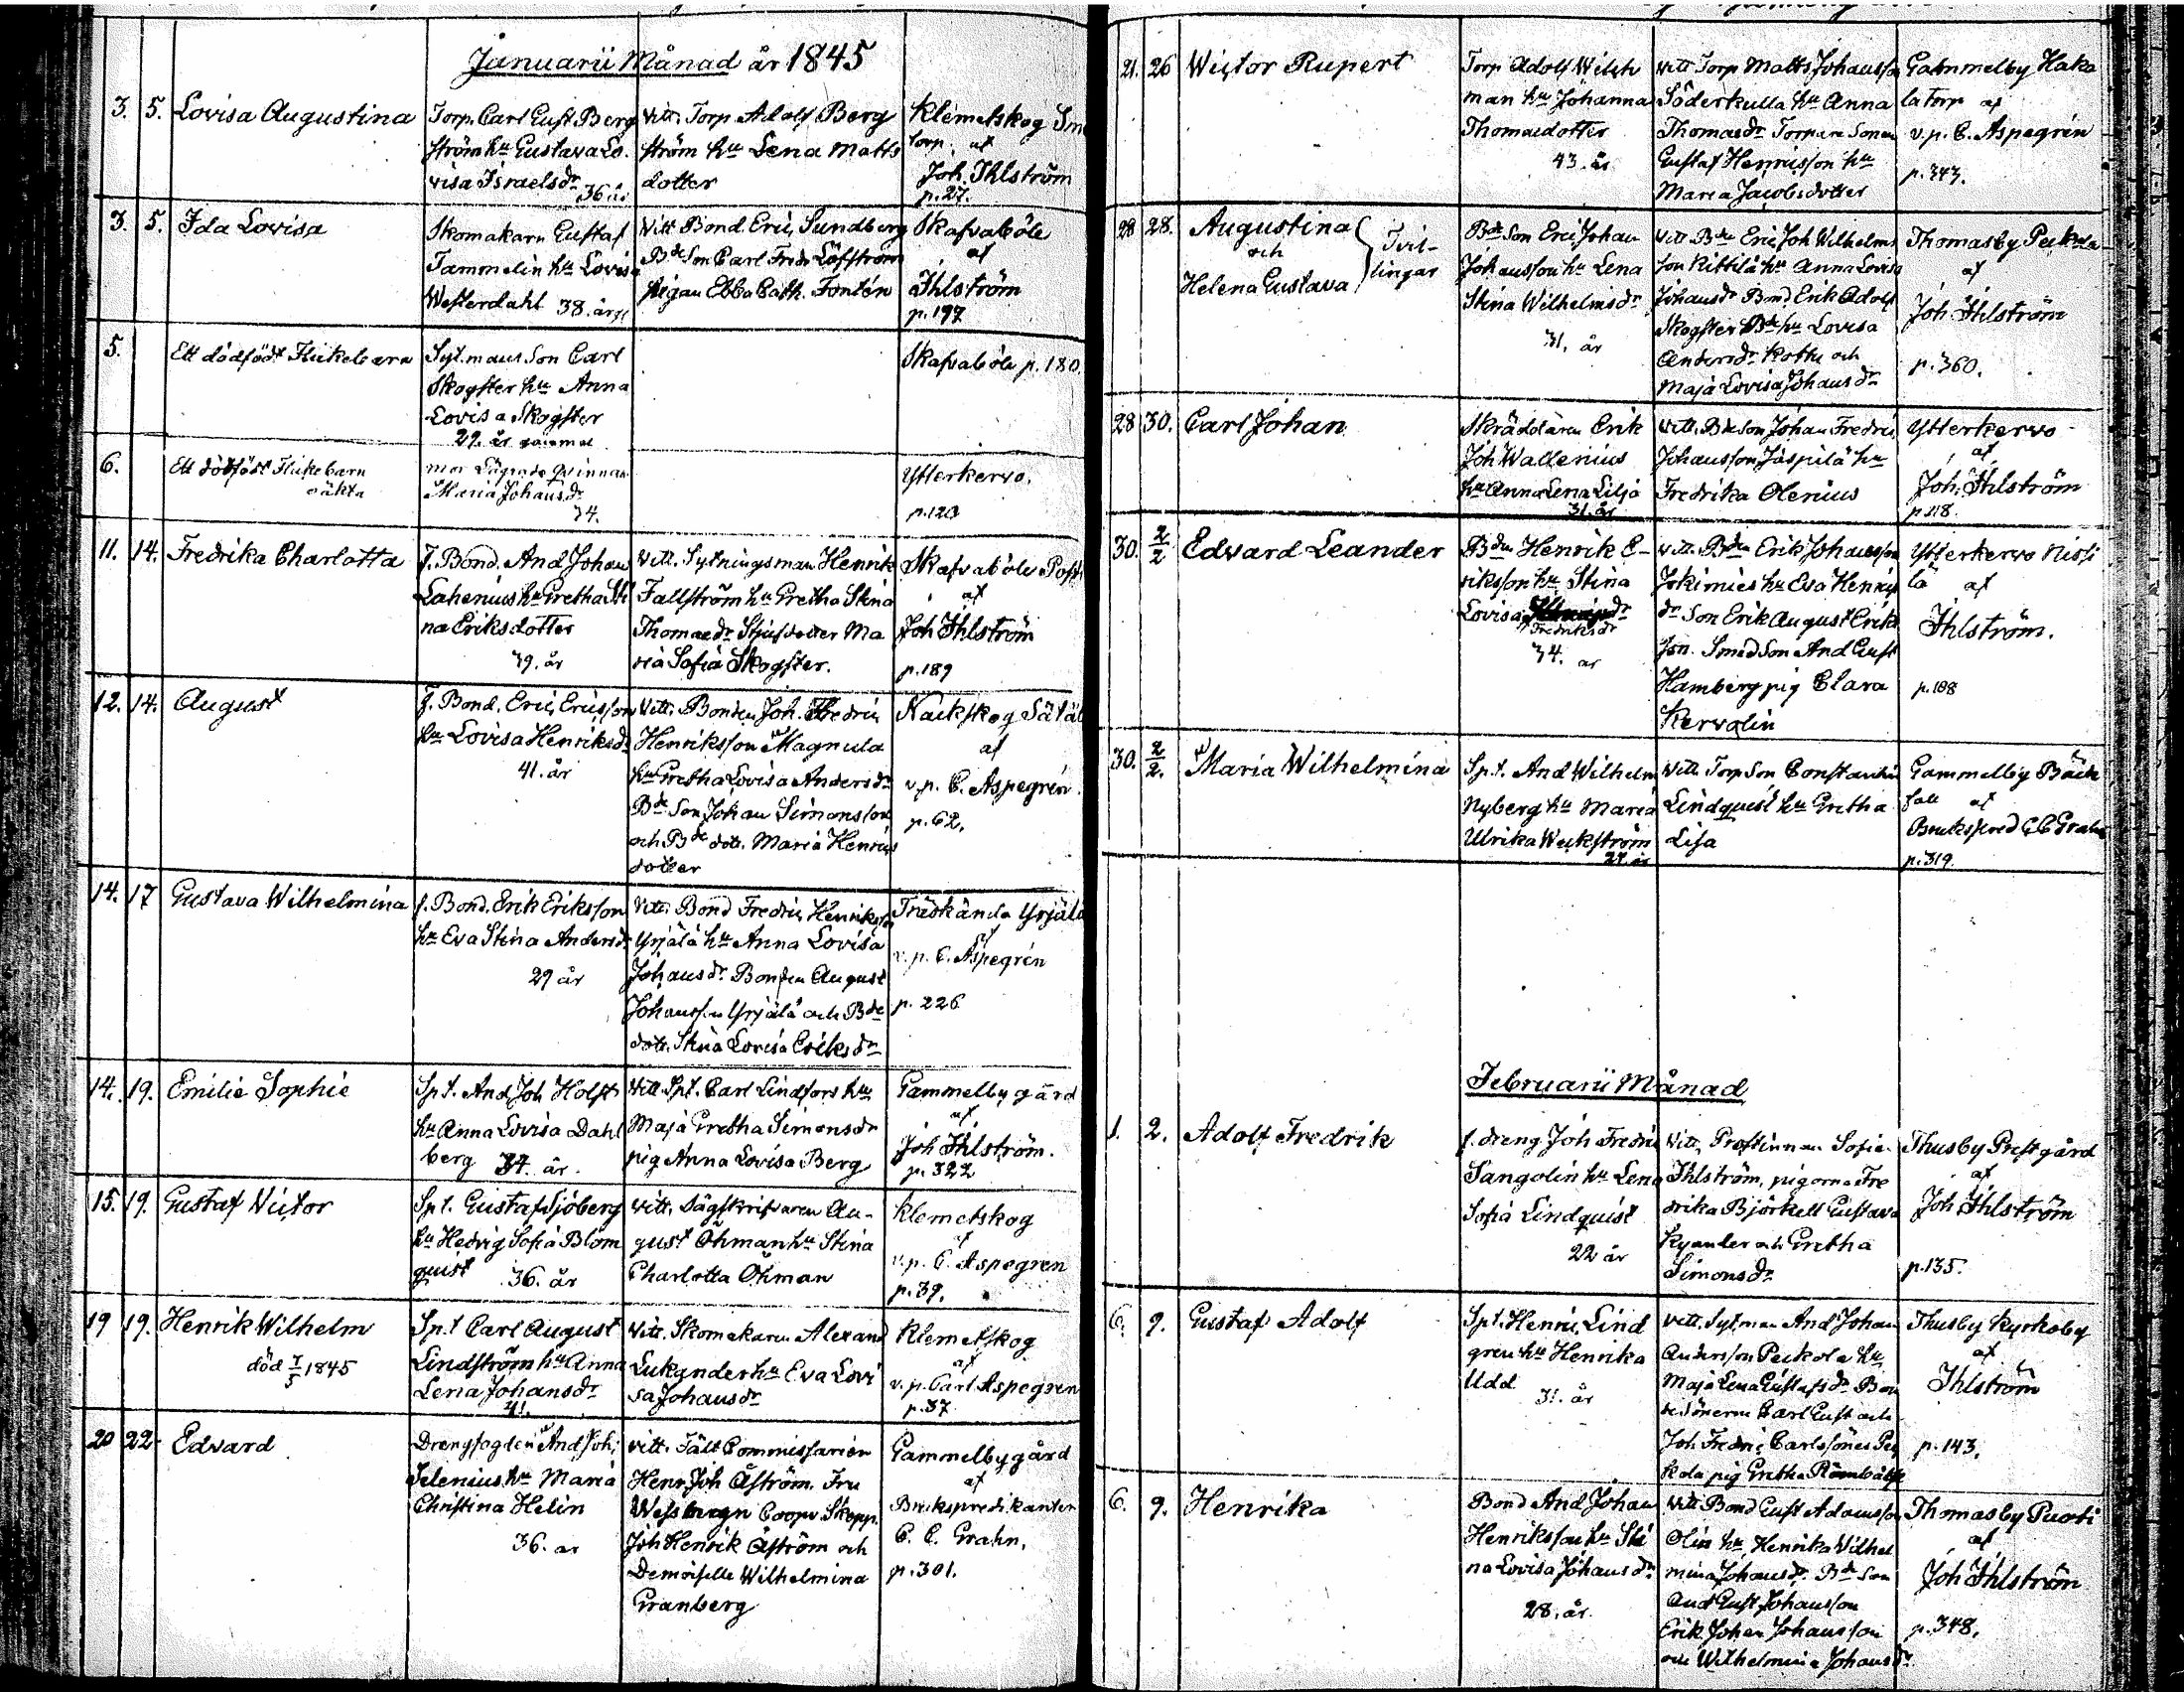 Januarii Månad år 1845
3. 5. Lovisa Augustina
Torp. Carl Gust Berg
ström hu Gustava Lo.
visa Israelsdr
36 år
Vitt. Torp Adolf Berg
ström hu Lena Matts
dotter
Klemetskog
torp. af
Joh. Ihlström
p. 27.
3. 5. Ida Lovisa
Skomakarn Gustaf
Tammelin hu Lovisa
Westerdahl 38. år
Vitt Bond. Eric Sundberg
Bde Son Carl Fredr Löfström
pigan Ebba Cath. Fontén
Skafvaböle
af
Ihlström
p. 197
5. Ett dödfödt Flickebarn
Syt.mans Son Carl
Skogster hu Anna
Lovisa Skogster
29. år gammal
Skafvaböle p. 180.
6. Ett dödfödt Flickebarn
oäkta
mor Lägrade Qvinnan
Maria Johansdr
34.
Ytterkervo.
p. 123
11. 14. Fredrika Charlotta
f. Bond. And Johan
Lahenius hu Gretha Sti
na Eriksdotter
39. år
Vitt. Sytningsman Henrik
Fallström hu Gretha Stina
Thomasdr Stjufdotter Ma
ria Sofia Skogster.
Skafvaböle Post
af
Joh Ihlström
p. 189
12. 14. August
f. Bond. Eric Ericsson
hu Lovisa Henriksdr
41. år
Vitt. Bonden Joh. Fredric
Henriksson Magnula
hu Gretha Lovisa Andersdr
Bde Son Johan Simonsson
och Bde dotr. Maria Henrics
dotter
Nackskog
af
v. p. C. Aspegrén
p. 62.
14. 17 Gustava Wilhelmina
f. Bond. Erik Eriksson
hu Eva Stina Andersdr
29 år
Vitt. Bond Fredric Henriksson
Yrjälä hu Anna Lovisa
Johansdr Bonden August
Johansson Yrjälä och Bde
dotr. Stina Lovisa Eriksdr
Träskända Yrjälä
af
v. p. C. Aspegrén
p. 226
14. 19. Emilie Sophie
Spt. And Joh Holst
hu Anna Lovisa Dahl
berg 34. år.
Vitt. Spt. Carl Lindfors hu
Maja Gretha Simonsdr
pig Anna Lovisa Berg
Gammelby gård
af
Joh Ihlström.
p. 322
15. 19. Gustaf Victor
Spt. Gustaf Sjöberg
hu Hedvig Sofia Blom
quist 36. år
Vitt. Sågskrifvaren Au-
gust Öhman hu Stina
Charlotta Öhman
Klemetskog
af
v. p. C. Aspegren
p. 39.
19 19. Henrik Wilhelm
död 7/5 1845
Sp.t Carl August
Lindström hu Anna
Lena Johansdr
41.
Vitt. Skomakaren Alexand
Lukander hu Eva Lovi
sa Johansdr
Klemetskog
af
v. p. Carl Aspegren
p. 37
20 22. Edvard
Drengfogden And Joh
Selenius hu Maria
Christina Helin
36. år
Vitt. Fält Commissarien
Henr Joh Åström Fru
Coopv. Skepp.
Joh Henrik Åström och
Demoiselle Wilhelmina
Granberg
Gammelby gård
af
Brukspredikanten
C. C. Grahn.
p. 301.
21. 26 Wictor Rupert
Torp Adolf Wilch
man hu Johanna
Thomasdotter
43. år
Vitt Torp Matts Johansson
Söderkulla hu Anna
Thomasdr Torpare Sonen
Gustaf Henricsson hu
Maria Jacobsdotter
Gammelby Haka
la torp af
v. p. C. Aspegrén
p. 343.
28 28. Augustina
och
Helena Gustava
Tvil-
lingar
Bde Son Eric Johan
Johansson hu Lena
Stina Wilhelmsdr
31. år
Vitt. Bdn Eric Joh Wilhelms
son Kittilä hu Anna Lovisa
Johansdr Bond. Erik Adolf
Skogster Bde hu Lovisa
Andersdr Kothi och
Maja Lovisa Johansdr
Thomasby Peckola
af
Joh. Ihlström
p. 360.
28 30. Carl Johan
Skräddaren Erik
Joh Wallenius
hu Anna Lena Lilja
31. år
Vitt. Bde Son Johan Fredric
Johansson Jäspilä hu
Fredrika Olenius
Ytterkervo
af
Joh. Ihlström
p. 118.
30. 2/2 Edvard Leander
Bdn Henrik E-
riksson hu Stina
Lovisa
Fredriksdr
34. år
Vitt. Bdn Erik Johansson
Jokimies hu Eva Henrics
dr Son Erik August Eriks
son. Smed Son And Gust
Hamberg pig Clara
Kervolin
Ytterkervo Nissi
lä af
Ihlström.
p. 108
30. 2/2. Maria Wilhelmina
Sp.t. And Wilhelm
Nyberg hu Maria
Ulrika Weckström
24. år
Vitt. Torp Son Constantin
Lindquist hu Gretha
Lisa
Gammelby Back
fall af
Brukspred C C Grahn
p. 319.
Februarii Månad
1. 2. Adolf Fredrik
f. dreng Joh Fredric
Sangolin hu Lena
Sofia Lindquist
22 år
Vitt. Prostinnan Sofia
Ihlström, pigorna Fre
drika Björkell Gustava
Kyander och Gretha
Simonsdr
Thusby Prestgård
af
Joh Ihlström
p. 135.
6. 9. Gustaf Adolf
Spt. Henric Lind
gren hu Henrika
Udd
31. år
Vitt. Syt.man And Johan
Andersson Peckola hu
Maja Lena Gustafsdr Bon
desönerne Carl Gust och
Joh Fredric Carlssöner Pec
kola pig Gretha
Thusby Kyrkoby
af
Ihlström
p. 143.
6. 9. Henrika
Bond And Johan
Henriksson hu Sti
na Lovisa Johansdr
28. år.
Vitt. Bond Gust Adamsson
Olin hu Henrika Wilhel
mina Johansdr. Bde Son
And Gust Johansson
Erik Johan Johansson
och Wilhelmina Johansdr
Thomasby Puosti
af
Joh Ihlström
p. 348.